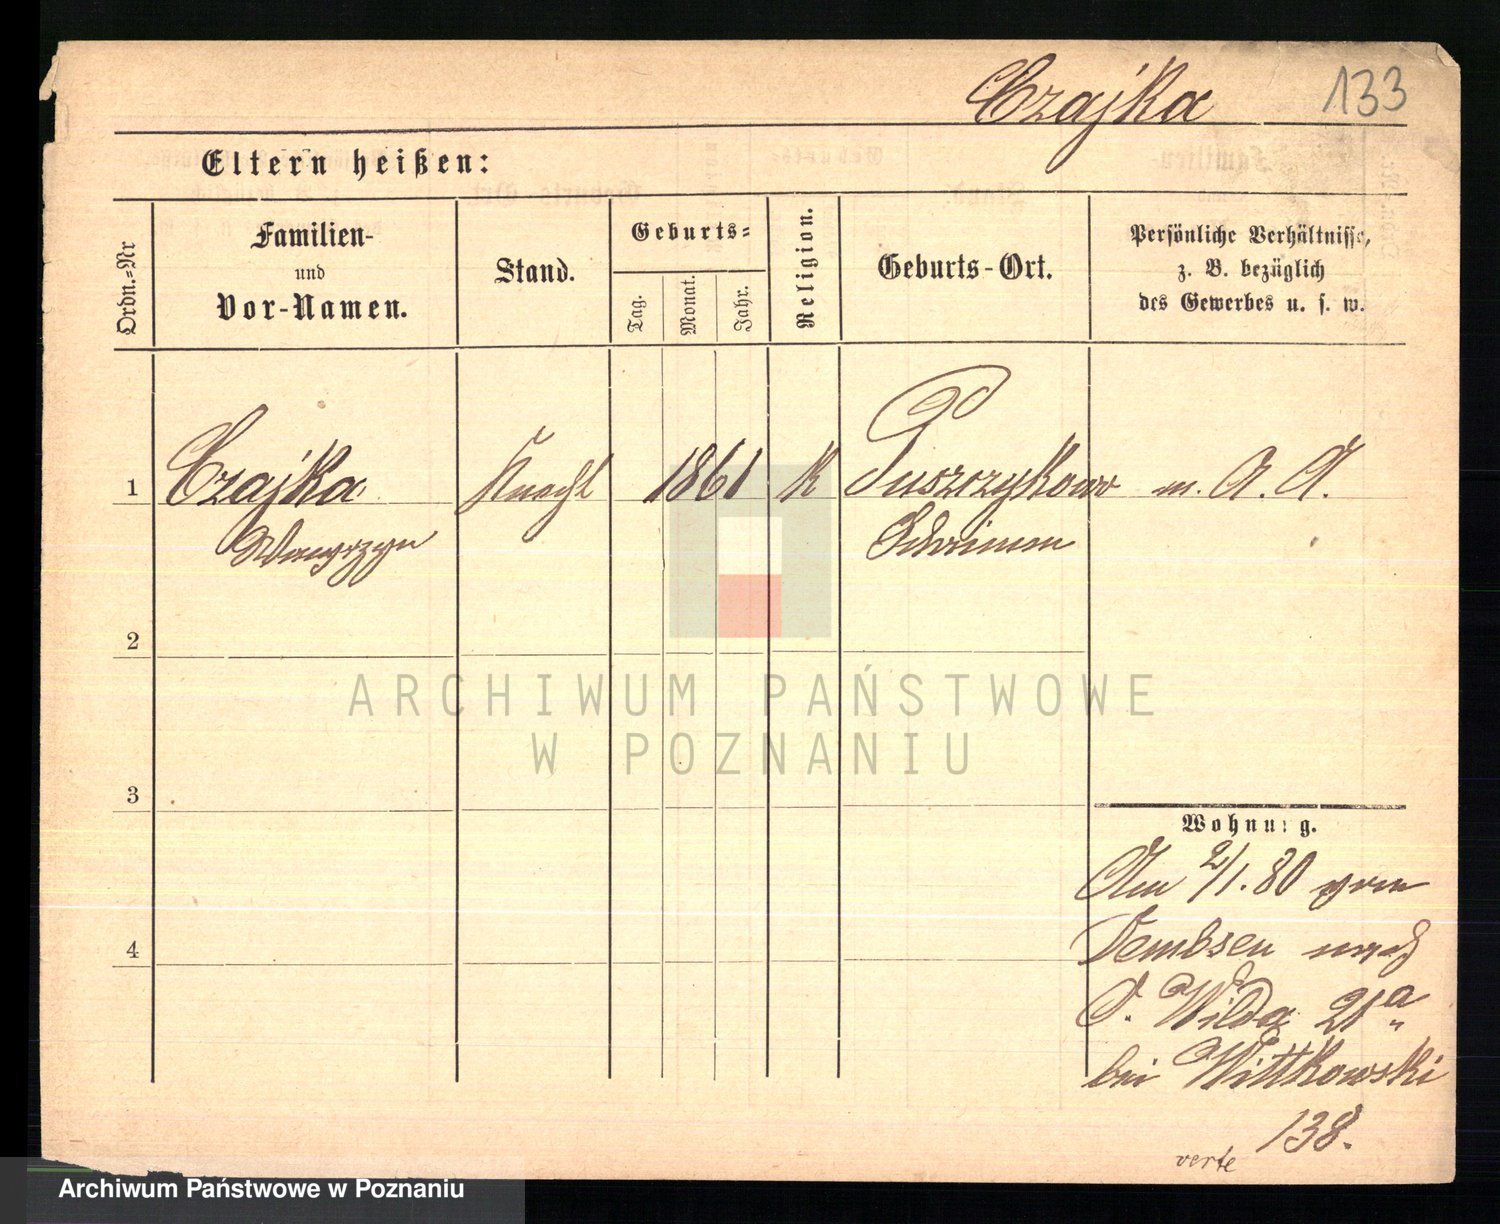 Czajka 133
Eltern heißen:
Ordn.=Nr
Familien-
und
Vor-Namen.
Stand.
Geburts=
Tag.
Monat.
Jahr.
Religion.
Geburts-Ort.
Persönliche Verhältnisse,
z. B. bezüglich
des Gewerbes u. s. w.
1 Czajka Knecht 1861 K Puszczykowo m. A. A.
Wawrzyn Schrimm
2
3
4
Wohnung.
Am 2/1. 80 von
Dembsen nach
O. Wilda 21a
bei Wittkowski
138.
verte
ARCHIWUM PAŃSTWOWE
W POZNANIU
Archiwum Państwowe w Poznaniu